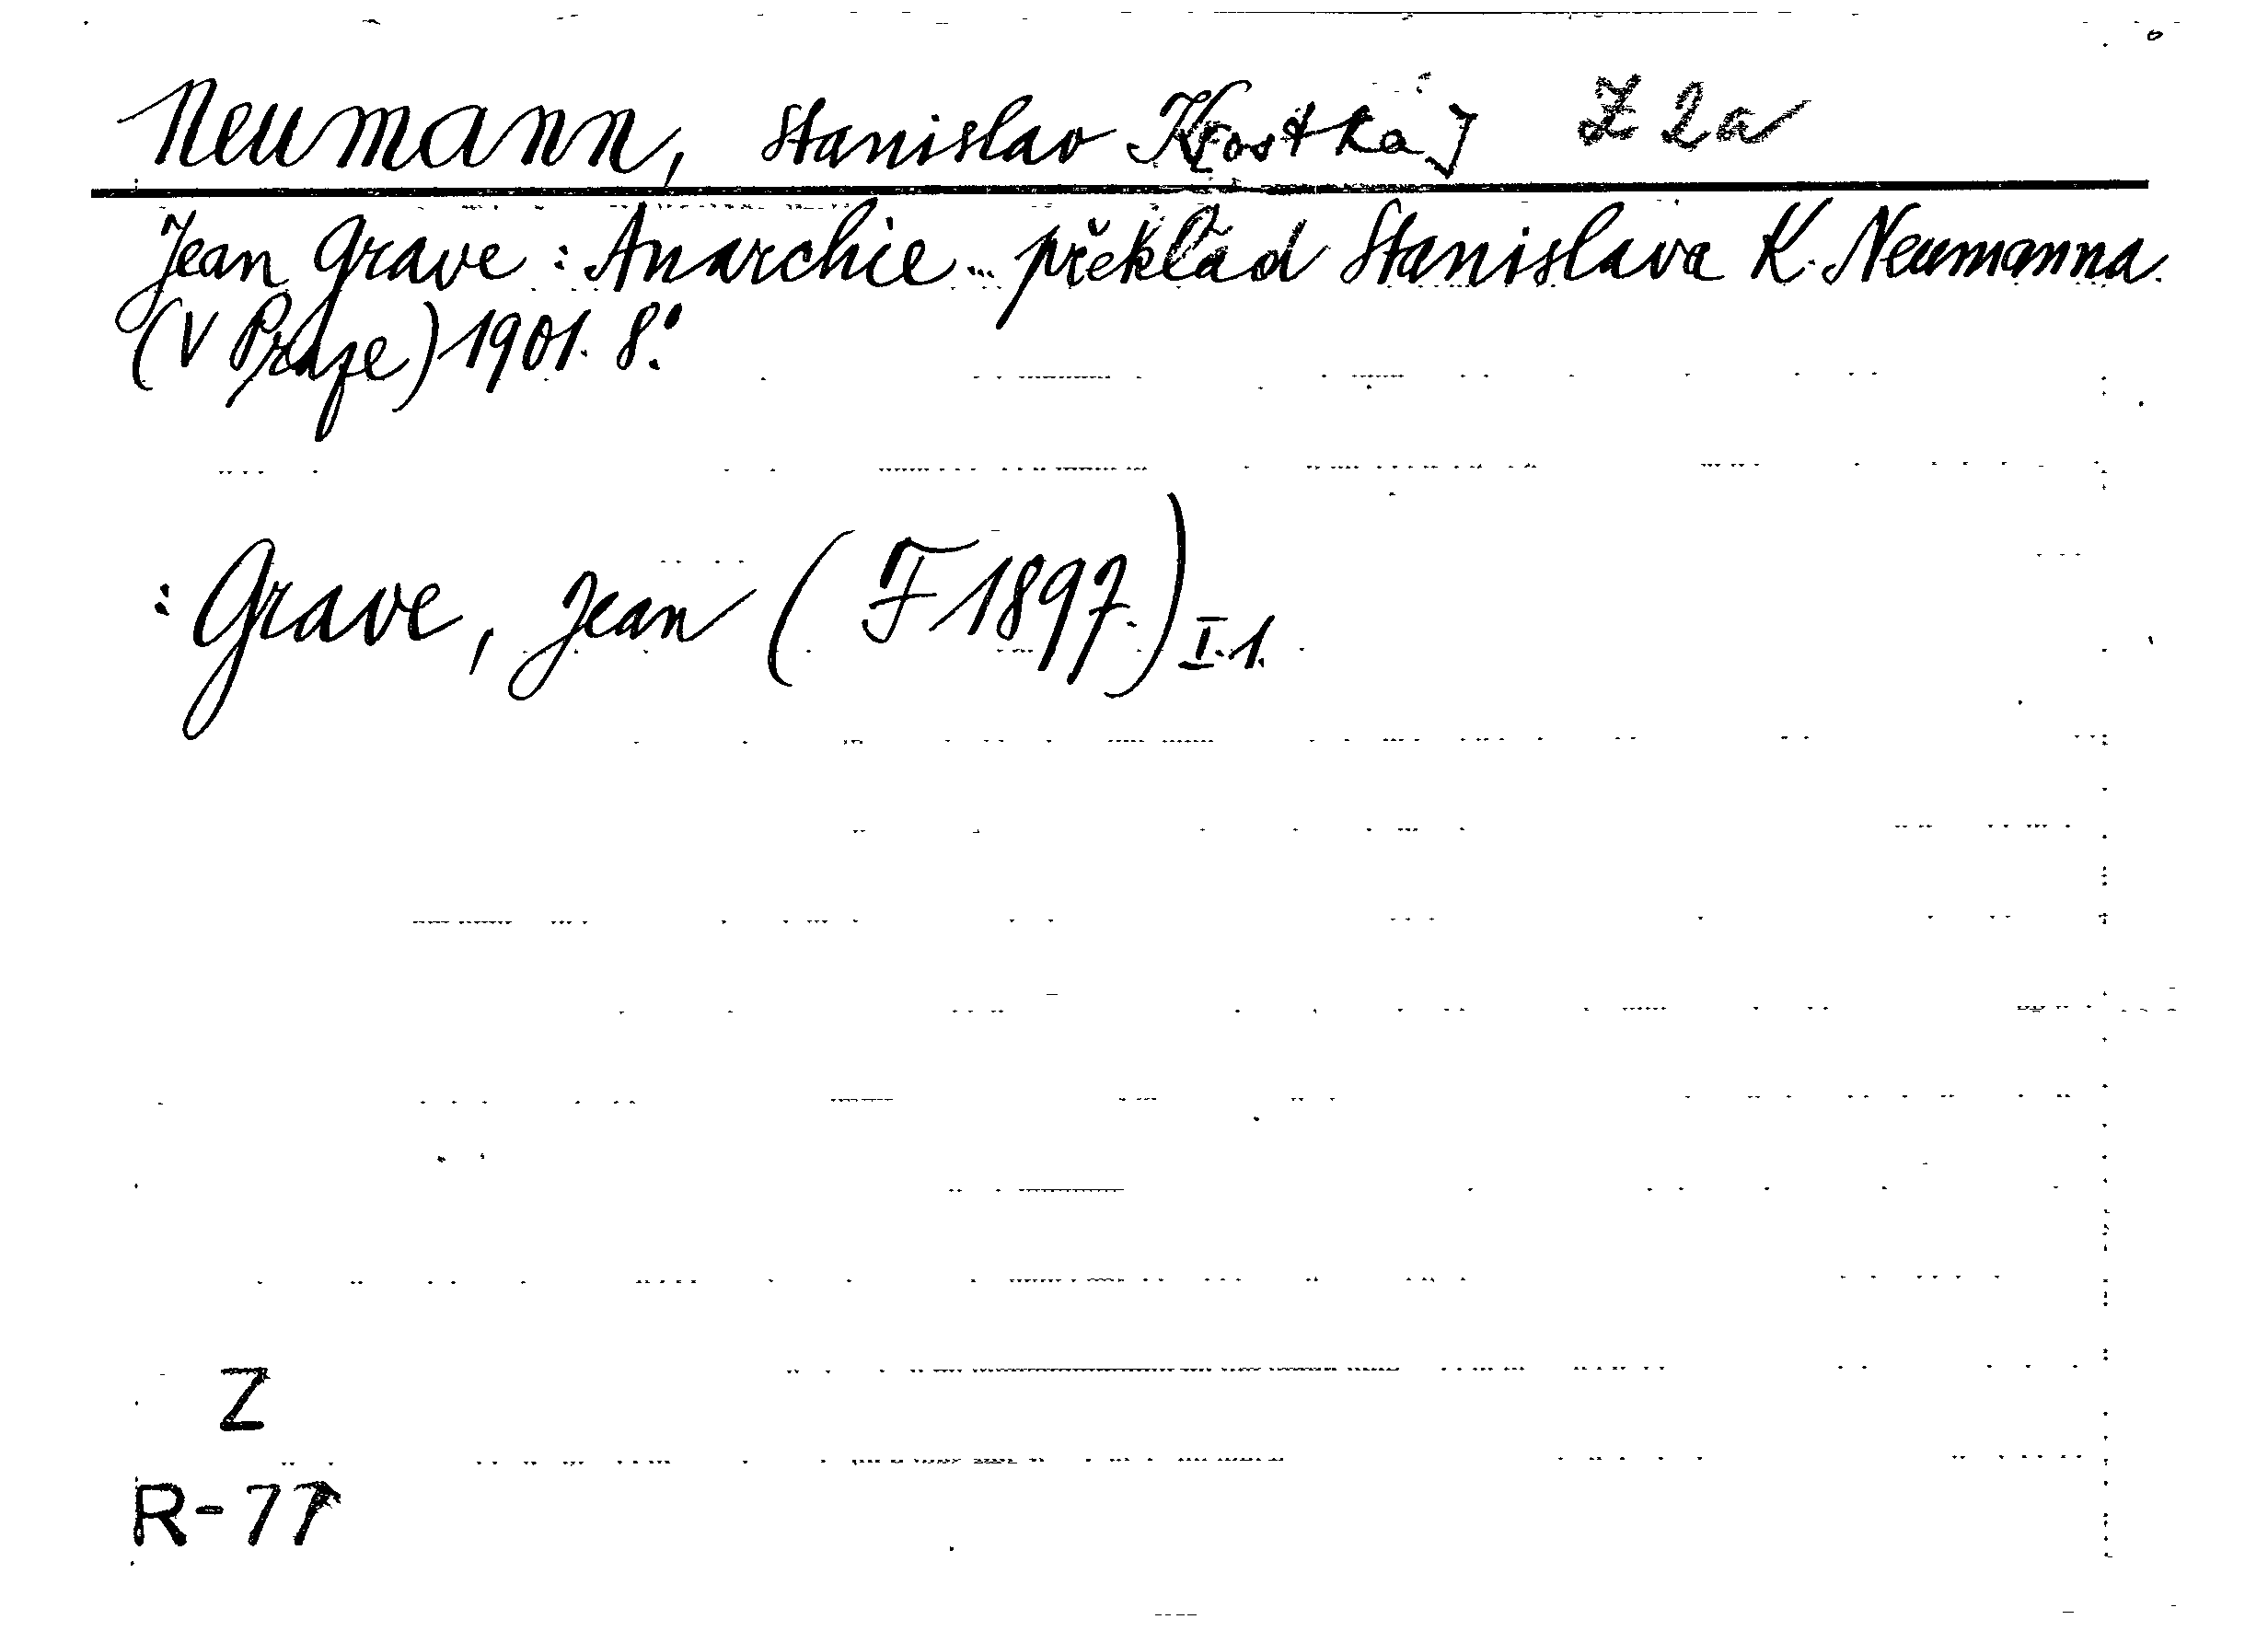 Neumann, Stanislav K[ostka] Z 2a
Jean Grave: Anarchie... překlad Stanislava K. Neumanna.
(V Praze) 1901. 8.°
: Grave, Jean (F 1897.) I.1.
Z
R-77